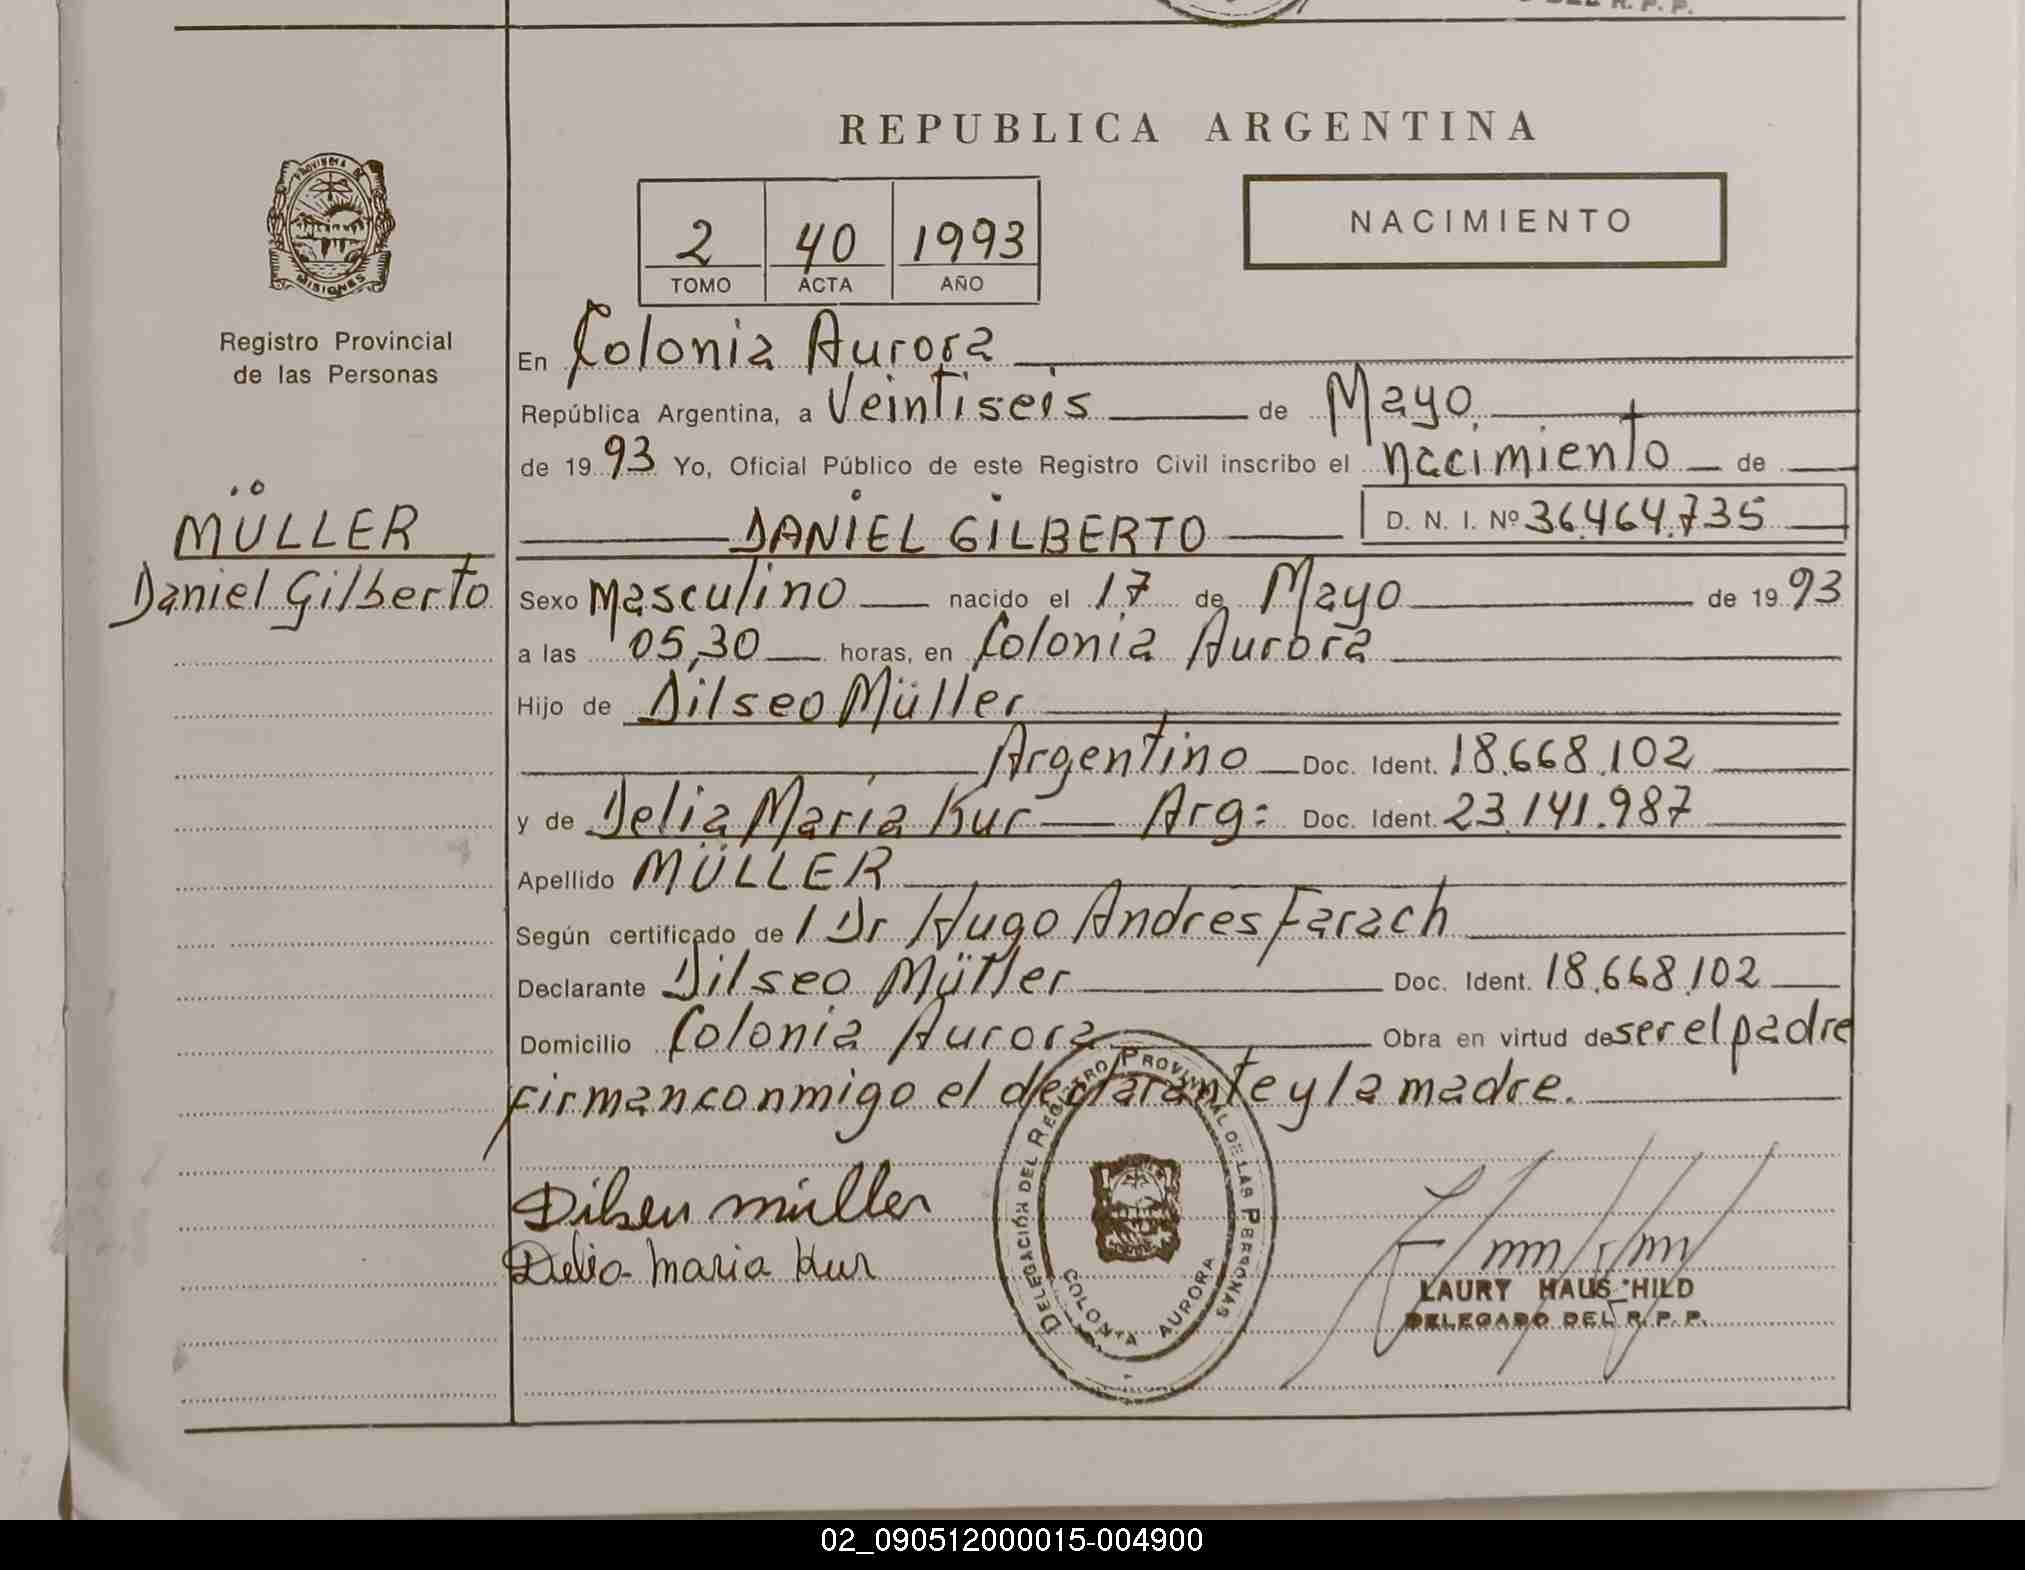 DEL R. P. P.
REPUBLICA ARGENTINA
PROVINCIA DE
MISIONES
NACIMIENTO
2 40 1993
TOMO ACTA AÑO
Registro Provincial
de las Personas
En Colonia Aurora
República Argentina, a Veintiseis de Mayo
de 1993 Yo, Oficial Público de este Registro Civil inscribo el nacimiento de
MÜLLER
Daniel Gilberto
DANIEL GILBERTO D. N. I. Nº 36.464.735
Sexo Masculino nacido el 17 de Mayo de 1993
a las 05,30 horas, en Colonia Aurora
Hijo de Dilseo Müller
Argentino Doc. Ident. 18.668.102
y de Delia María Kur Arg: Doc. Ident. 23.141.987
Apellido MÜLLER
Según certificado de l Dr Hugo Andres Farach
Declarante Dilseo Müller Doc. Ident. 18.668.102
Domicilio Colonia Aurora Obra en virtud de ser el padre
firman conmigo el declarante y la madre.
Dilseu müller
Delia maria Kur
DELEGACIÓN DEL REGISTRO PROVINCIAL DE LAS PERSONAS
COLONIA AURORA
LAURY HAUS HILD
DELEGADO DEL R. P. P.
02_090512000015-004900